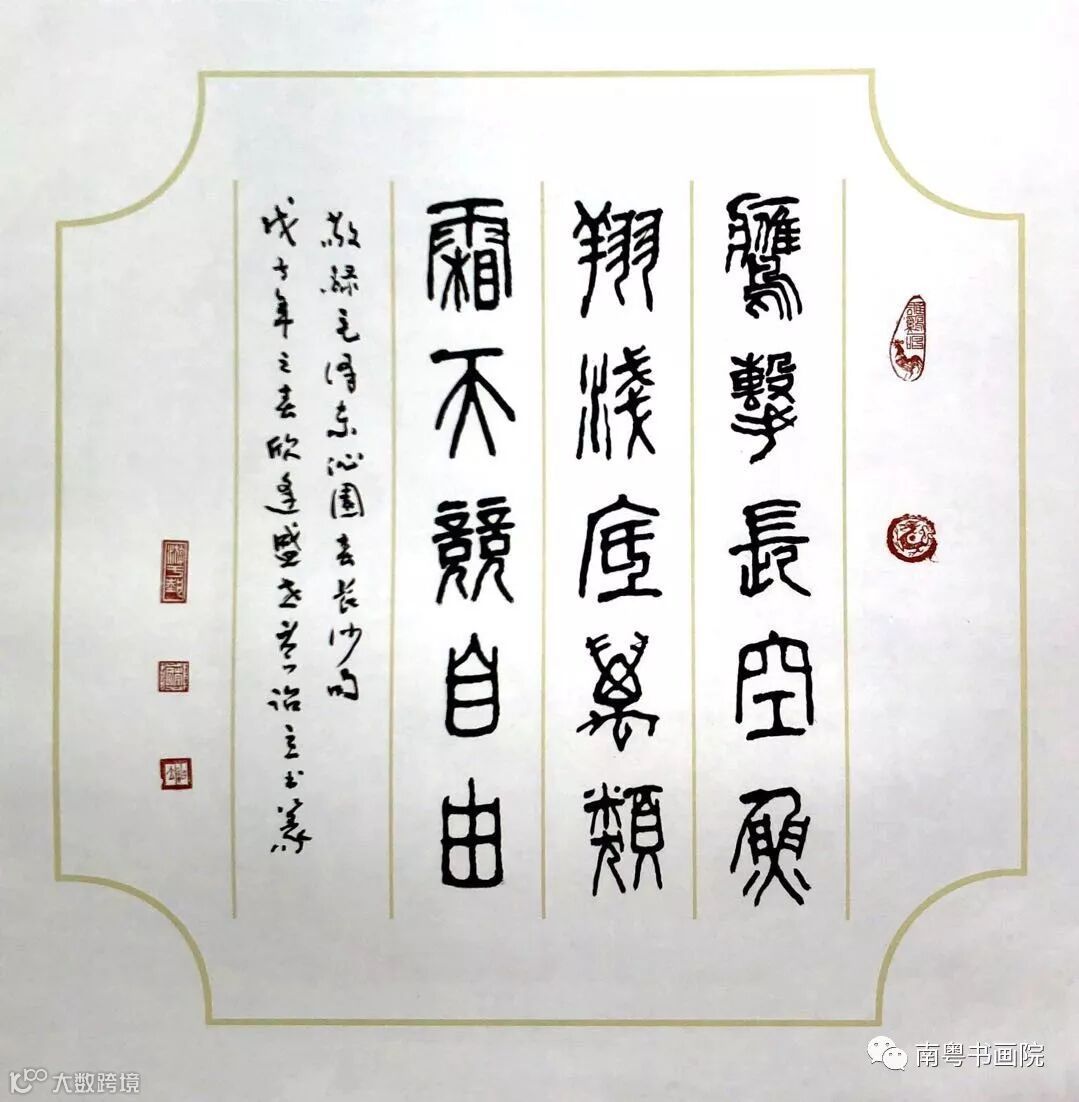 鷹擊長空魚
翔淺底萬類
霜天競自由
敬録毛澤東沁園春長沙句
戊戌年之春欣逢盛世黄治立書篆
南粤书画院
大数跨境